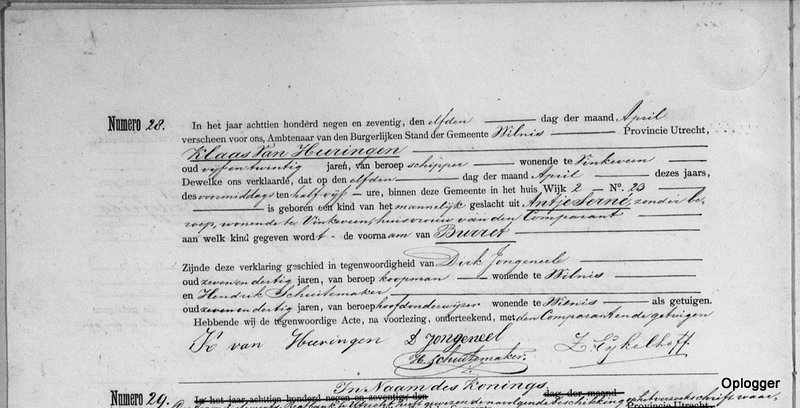 Numero 28.
In het jaar achttien honderd negen en zeventig, den elfden dag der maand April
verscheen voor ons, Ambtenaar van den Burgerlijken Stand der Gemeente Wilnis Provincie Utrecht,
Klaas van Heeringen
oud vijf en twintig jaren, van beroep schipper wonende te Vinkeveen
Dewelke ons verklaarde, dat op den elfden dag der maand April dezes jaars,
des voormiddags ten half vijf ure, binnen deze Gemeente in het huis Wijk 2 No. 23
is geboren een kind van het mannelijk geslacht uit Antje Serné, zonder be-
roep, wonende te Vinkeveen, huisvrouw van den Comparant
aan welk kind gegeven wordt de voornaam van
Zijnde deze verklaring geschied in tegenwoordigheid van Dirk Jongeneel
oud zeven en dertig jaren, van beroep koopman wonende te Wilnis
en Hendrik Schuitemaker,
oud zeven en dertig jaren, van beroep hoofdonderwijzer wonende te Wilnis als getuigen.
Hebbende wij de tegenwoordige Acte, na voorlezing, onderteekend, met den Comparant en de getuigen
K van Heeringen D Jongeneel
H. Schuitemaker.
Numero 29.
In Naam des Konings
In het jaar achttien honderd negen en zeventig den dag der maand
Provincie Utrecht
Oplogger